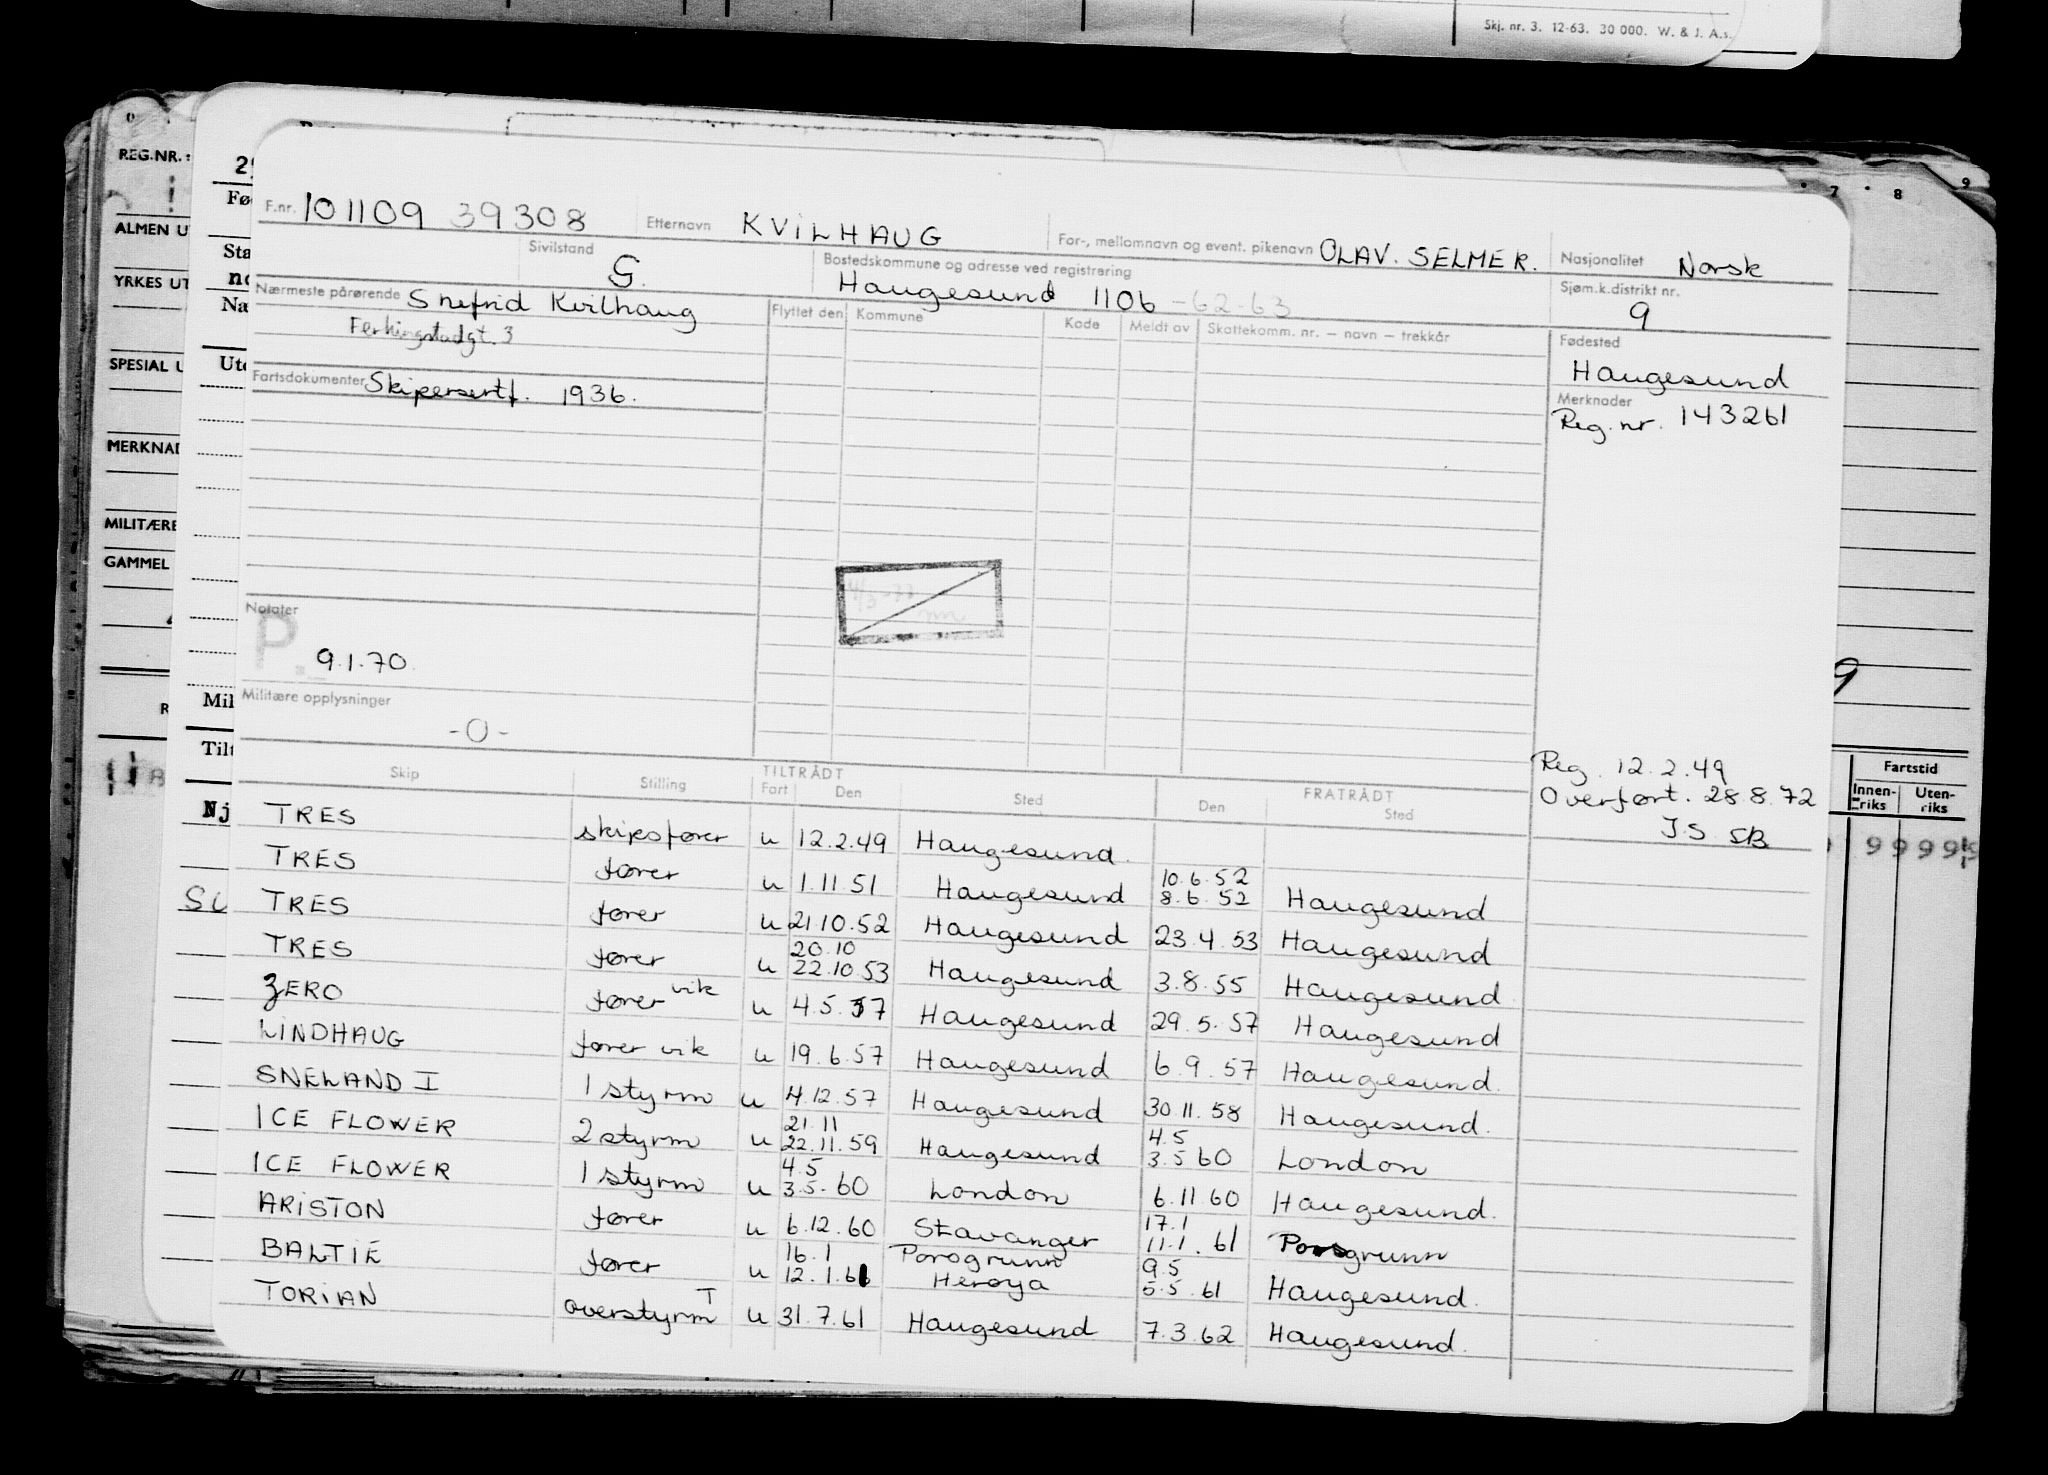 Skj. nr. 3. 12-63. 30 000. W. & J. A.s.
REG.NR.:
ALMEN U
YRKES UT
SPESIAL U
MERKNAD
MILITÆRE
GAMMEL
Mil
Tilt
Nj
F.nr. 101109 39308 Etternavn KVILHAUG For-, mellomnavn og event. pikenavn OLAV. SELMER. Nasjonalitet Norsk
Sivilstand G. Bostedskommune og adresse ved registrering Haugesund 1106 -62-63 Sjøm.k.distrikt nr. 9
Nærmeste pårørende Snefrid Kvilhaug
Ferkingstadgt. 3
Flyttet den Kommune Kode Meldt av Skattekomm. nr. – navn – trekkår
Fødested
Haugesund
Fartsdokumenter Skipersertf. 1936.
Merknader
Reg. nr. 143261
Notater
P.
9.1.70.
Militære opplysninger
-0-
Reg. 12.2.49
Overført. 28.8.72
J.S. SB
Skip Stilling TILTRÅDT Fart Den Sted FRATRÅDT Den Sted
Fartstid
Innenriks Utenriks
TRES skipsfører u 12.2.49 Haugesund.
TRES fører u 1.11.51 Haugesund 10.6.52 8.6.52 Haugesund
TRES fører u 21.10.52 Haugesund 23.4.53 Haugesund
TRES fører u 20.10 22.10.53 Haugesund 3.8.55 Haugesund
ZERO fører vik u 4.5.57 Haugesund 29.5.57 Haugesund
LINDHAUG fører vik u 19.6.57 Haugesund 6.9.57 Haugesund.
SNELAND I 1 styrm u 4.12.57 Haugesund 30.11.58 Haugesund.
ICE FLOWER 2 styrm u 21.11 22.11.59 Haugesund 4.5 3.5 60 London
ICE FLOWER 1 styrm u 4.5 3.5.60 London 6.11 60 Haugesund.
ARISTON fører u 6.12.60 Stavanger 17.1 11.1.61 Porsgrunn
BALTIE fører u 16.1 12.1.61 Porsgrunn Herøya 9.5 5.5.61 Haugesund.
TORIAN overstyrm T u 31.7.61 Haugesund 7.3.62 Haugesund.